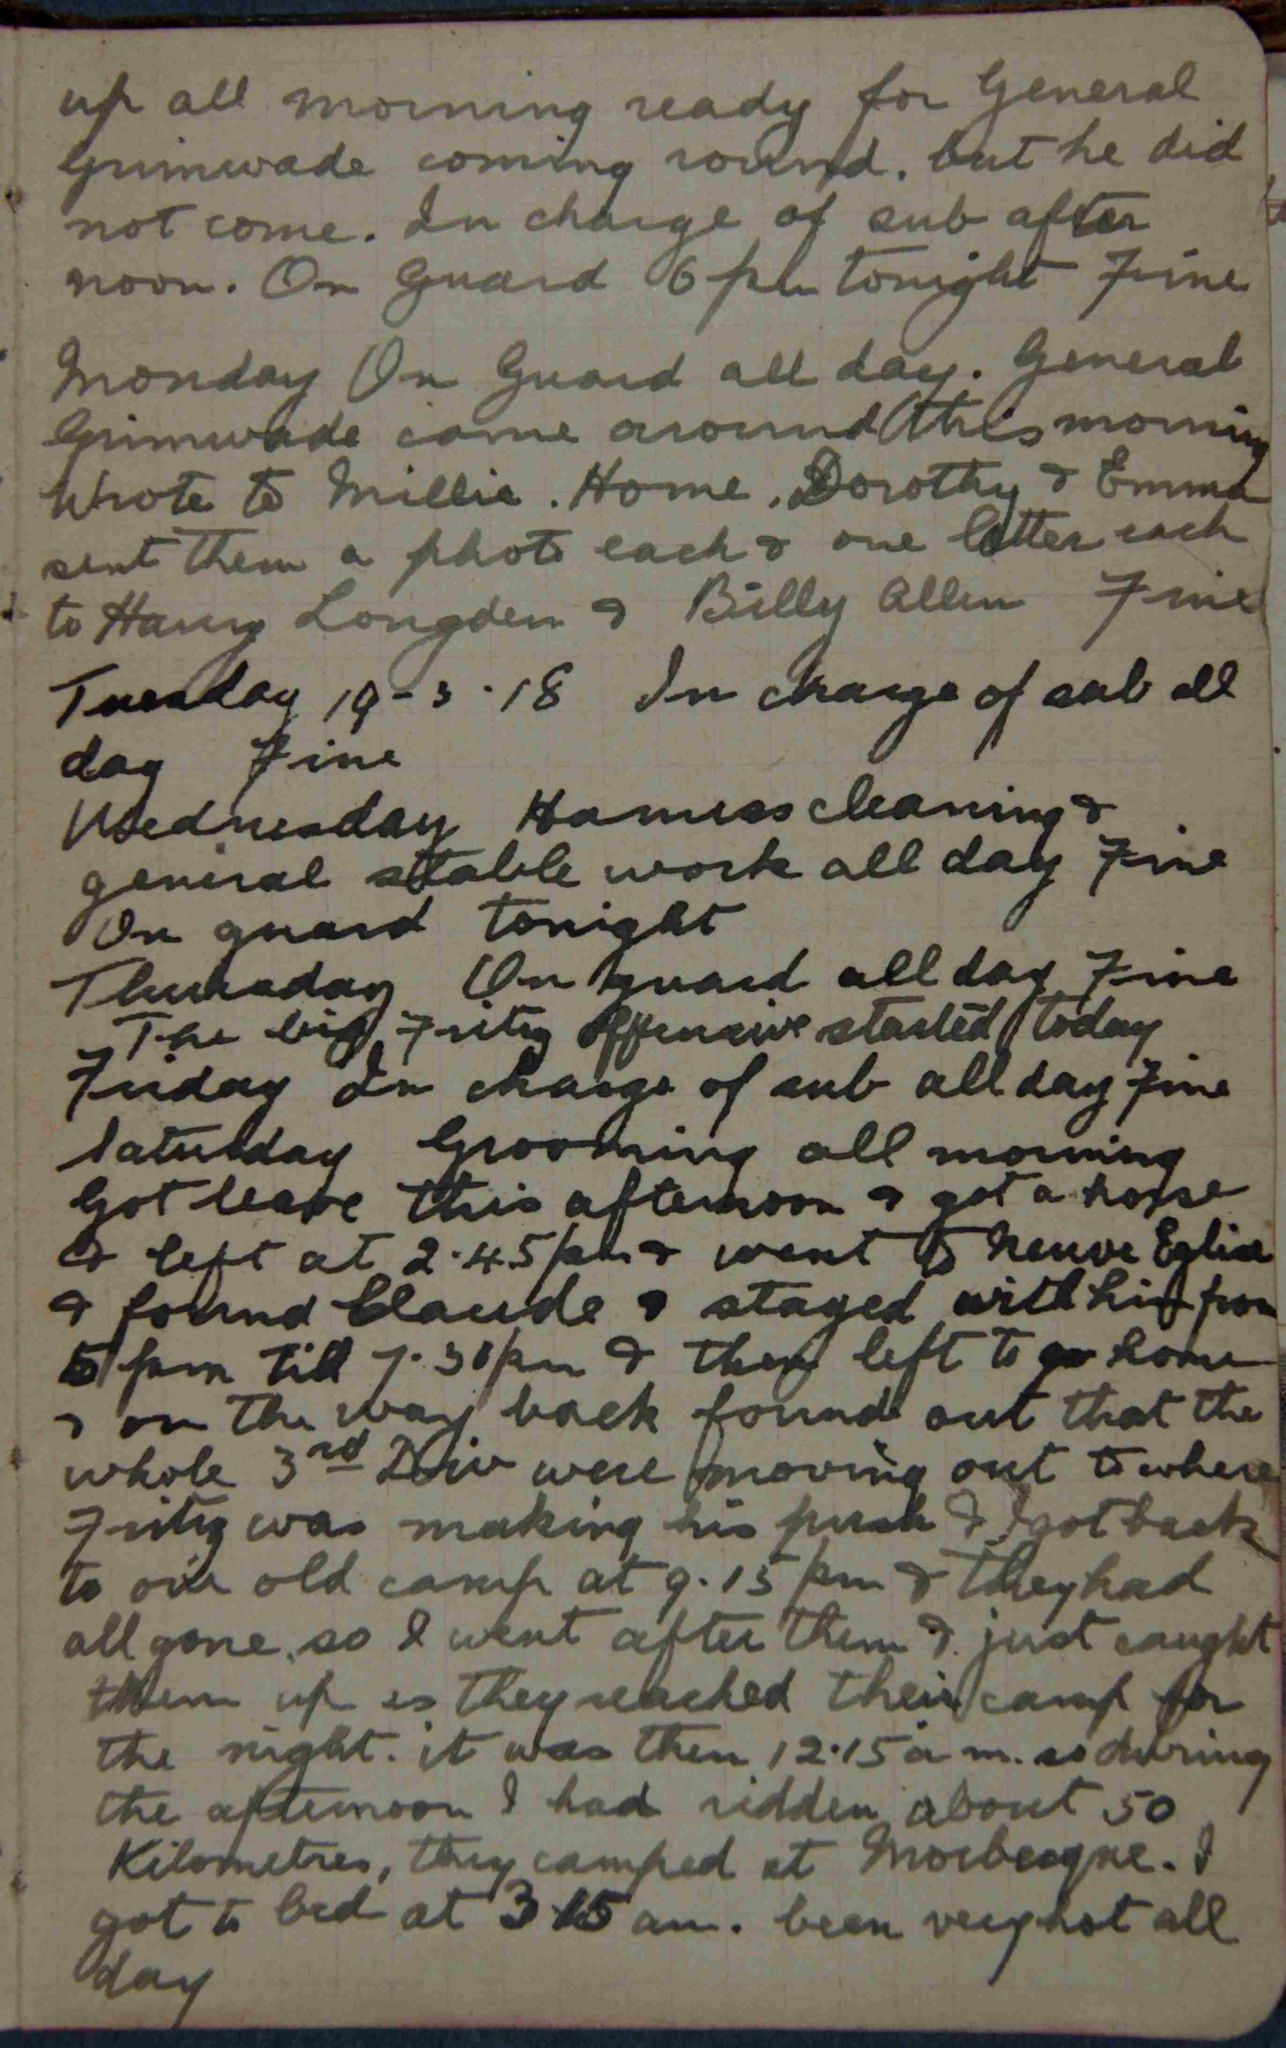 up all morning ready for General
Grimwade coming round. but he did
not come. In charge of sub after
noon. On Guard 6 pm tonight Fine
Monday On Guard all day. General
Grimwade came around this morning
Wrote to Millie. Home. Dorothy & Emma
sent them a photo each & one letter each
to Harry Longden & Billy Allen Fine
Tuesday 19-3-18 In charge of sub all
day Fine
Wednesday Harness cleaning &
general stable work all day Fine
On guard tonight
Thursday On guard all day Fine
The big Fritz offensive started today
Friday In charge of sub all day Fine
Saturday Grooming all morning
Got leave this afternoon & got a horse
& left at 2.45 pm & went to Neuve Eglise
& found Claude & stayed with him from
5 pm till 7.30 pm & then left to go home
& on the way back found out that the
whole 3rd Div were moving out to where
Fritz was making his push & I got back
to our old camp at 9.15 pm & they had
all gone, so I went after them & just caught
them up as they reached their camp for
the night. it was then 12.15 a m. so during
the afternoon I had ridden about 50
Kilometres, they camped at Morbecque. I
got to bed at 3.15 am. been very hot all
day